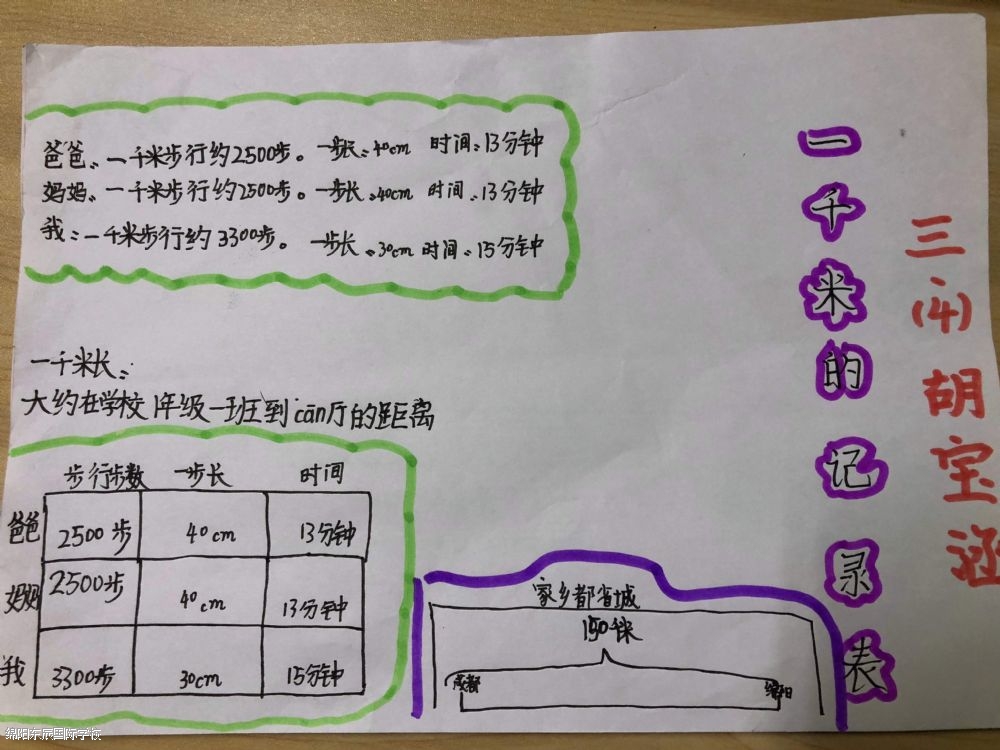 一千米的记录表
三(4)胡宝涵
爸爸:一千米步行约2500步。一步长:40cm 时间:13分钟
妈妈:一千米步行约2500步。一步长:40cm 时间:13分钟
我:一千米步行约3300步。一步长:30cm 时间:15分钟
一千米长:
大约在学校1年级一班到cān厅的距离
步行步数 一步长 时间
爸爸 2500步 40cm 13分钟
妈妈 2500步 40cm 13分钟
我 3300步 30cm 15分钟
家乡都省城
150千米
成都 绵阳
绵阳东辰国际学校